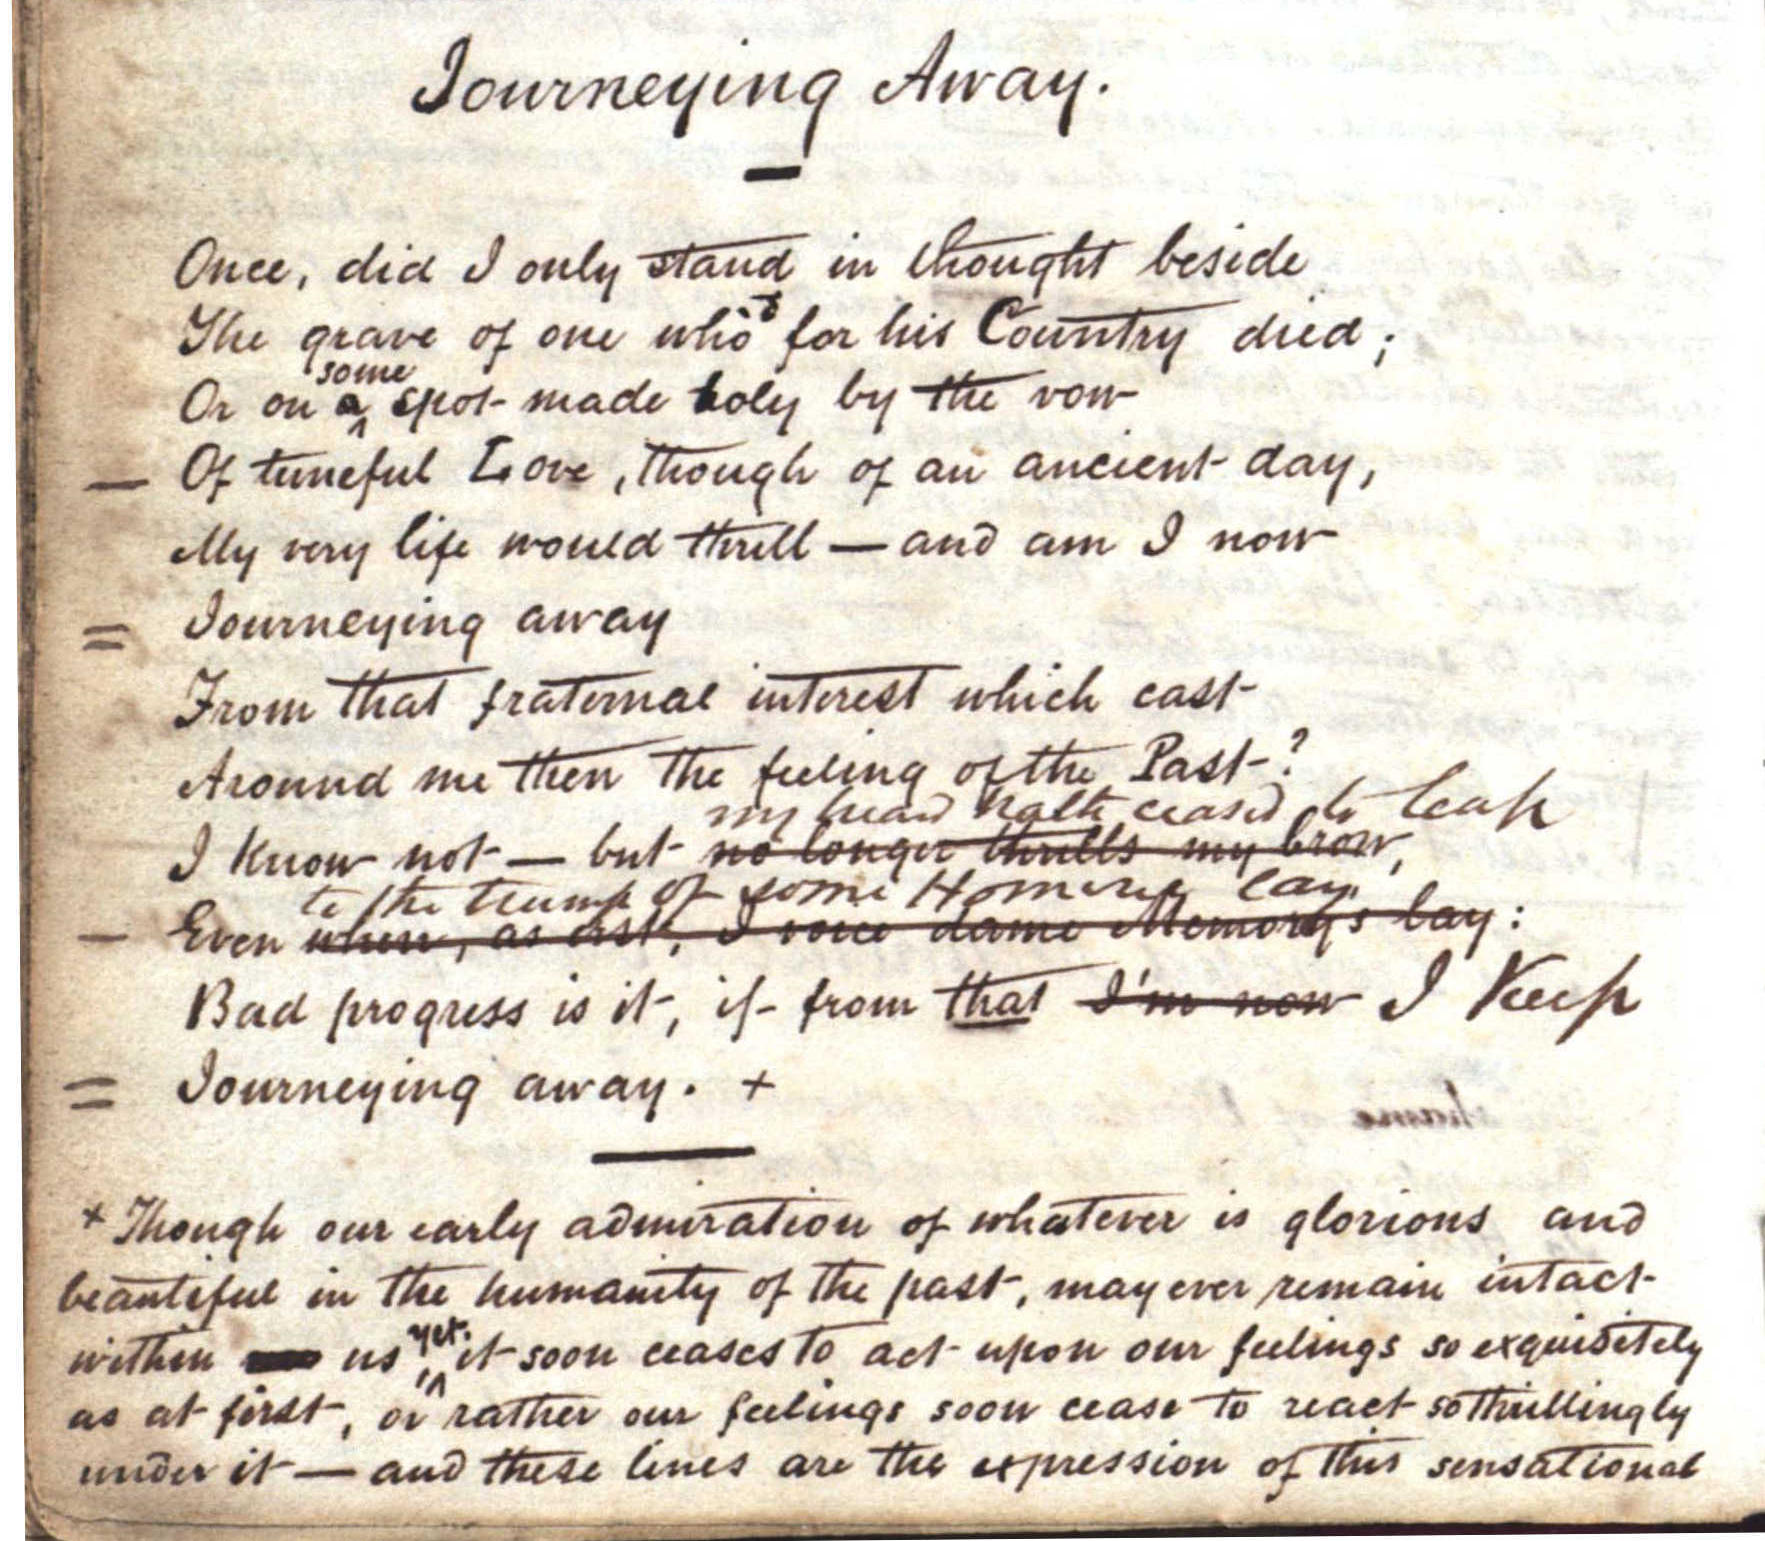 Journeying Away.
Once, did I only stand in thought beside
The grave of one who'd for his Country died;
some
Or on a spot made holy by the vow
Of tuneful Love, though of an ancient day,
My very life would thrill — and am I now
Journeying away
From that fraternal interest which cast
Around me then the feeling of the Past?
my head hath ceased to leap
I know not — but no longer thrills my brow,
to the trump of some Homeric lay
Even when, as erst, I voice dame Memory's lay:
Bad progress is it, if from that I'm now I Keep
Journeying away. +
+ Though our early admiration of whatever is glorious and
beautiful in the humanity of the past, may ever remain intact
yet
within us, it soon ceases to act upon our feelings so exquisitely
as at first, or rather our feelings soon cease to react so thrillingly
under it — and these lines are the expression of this sensational